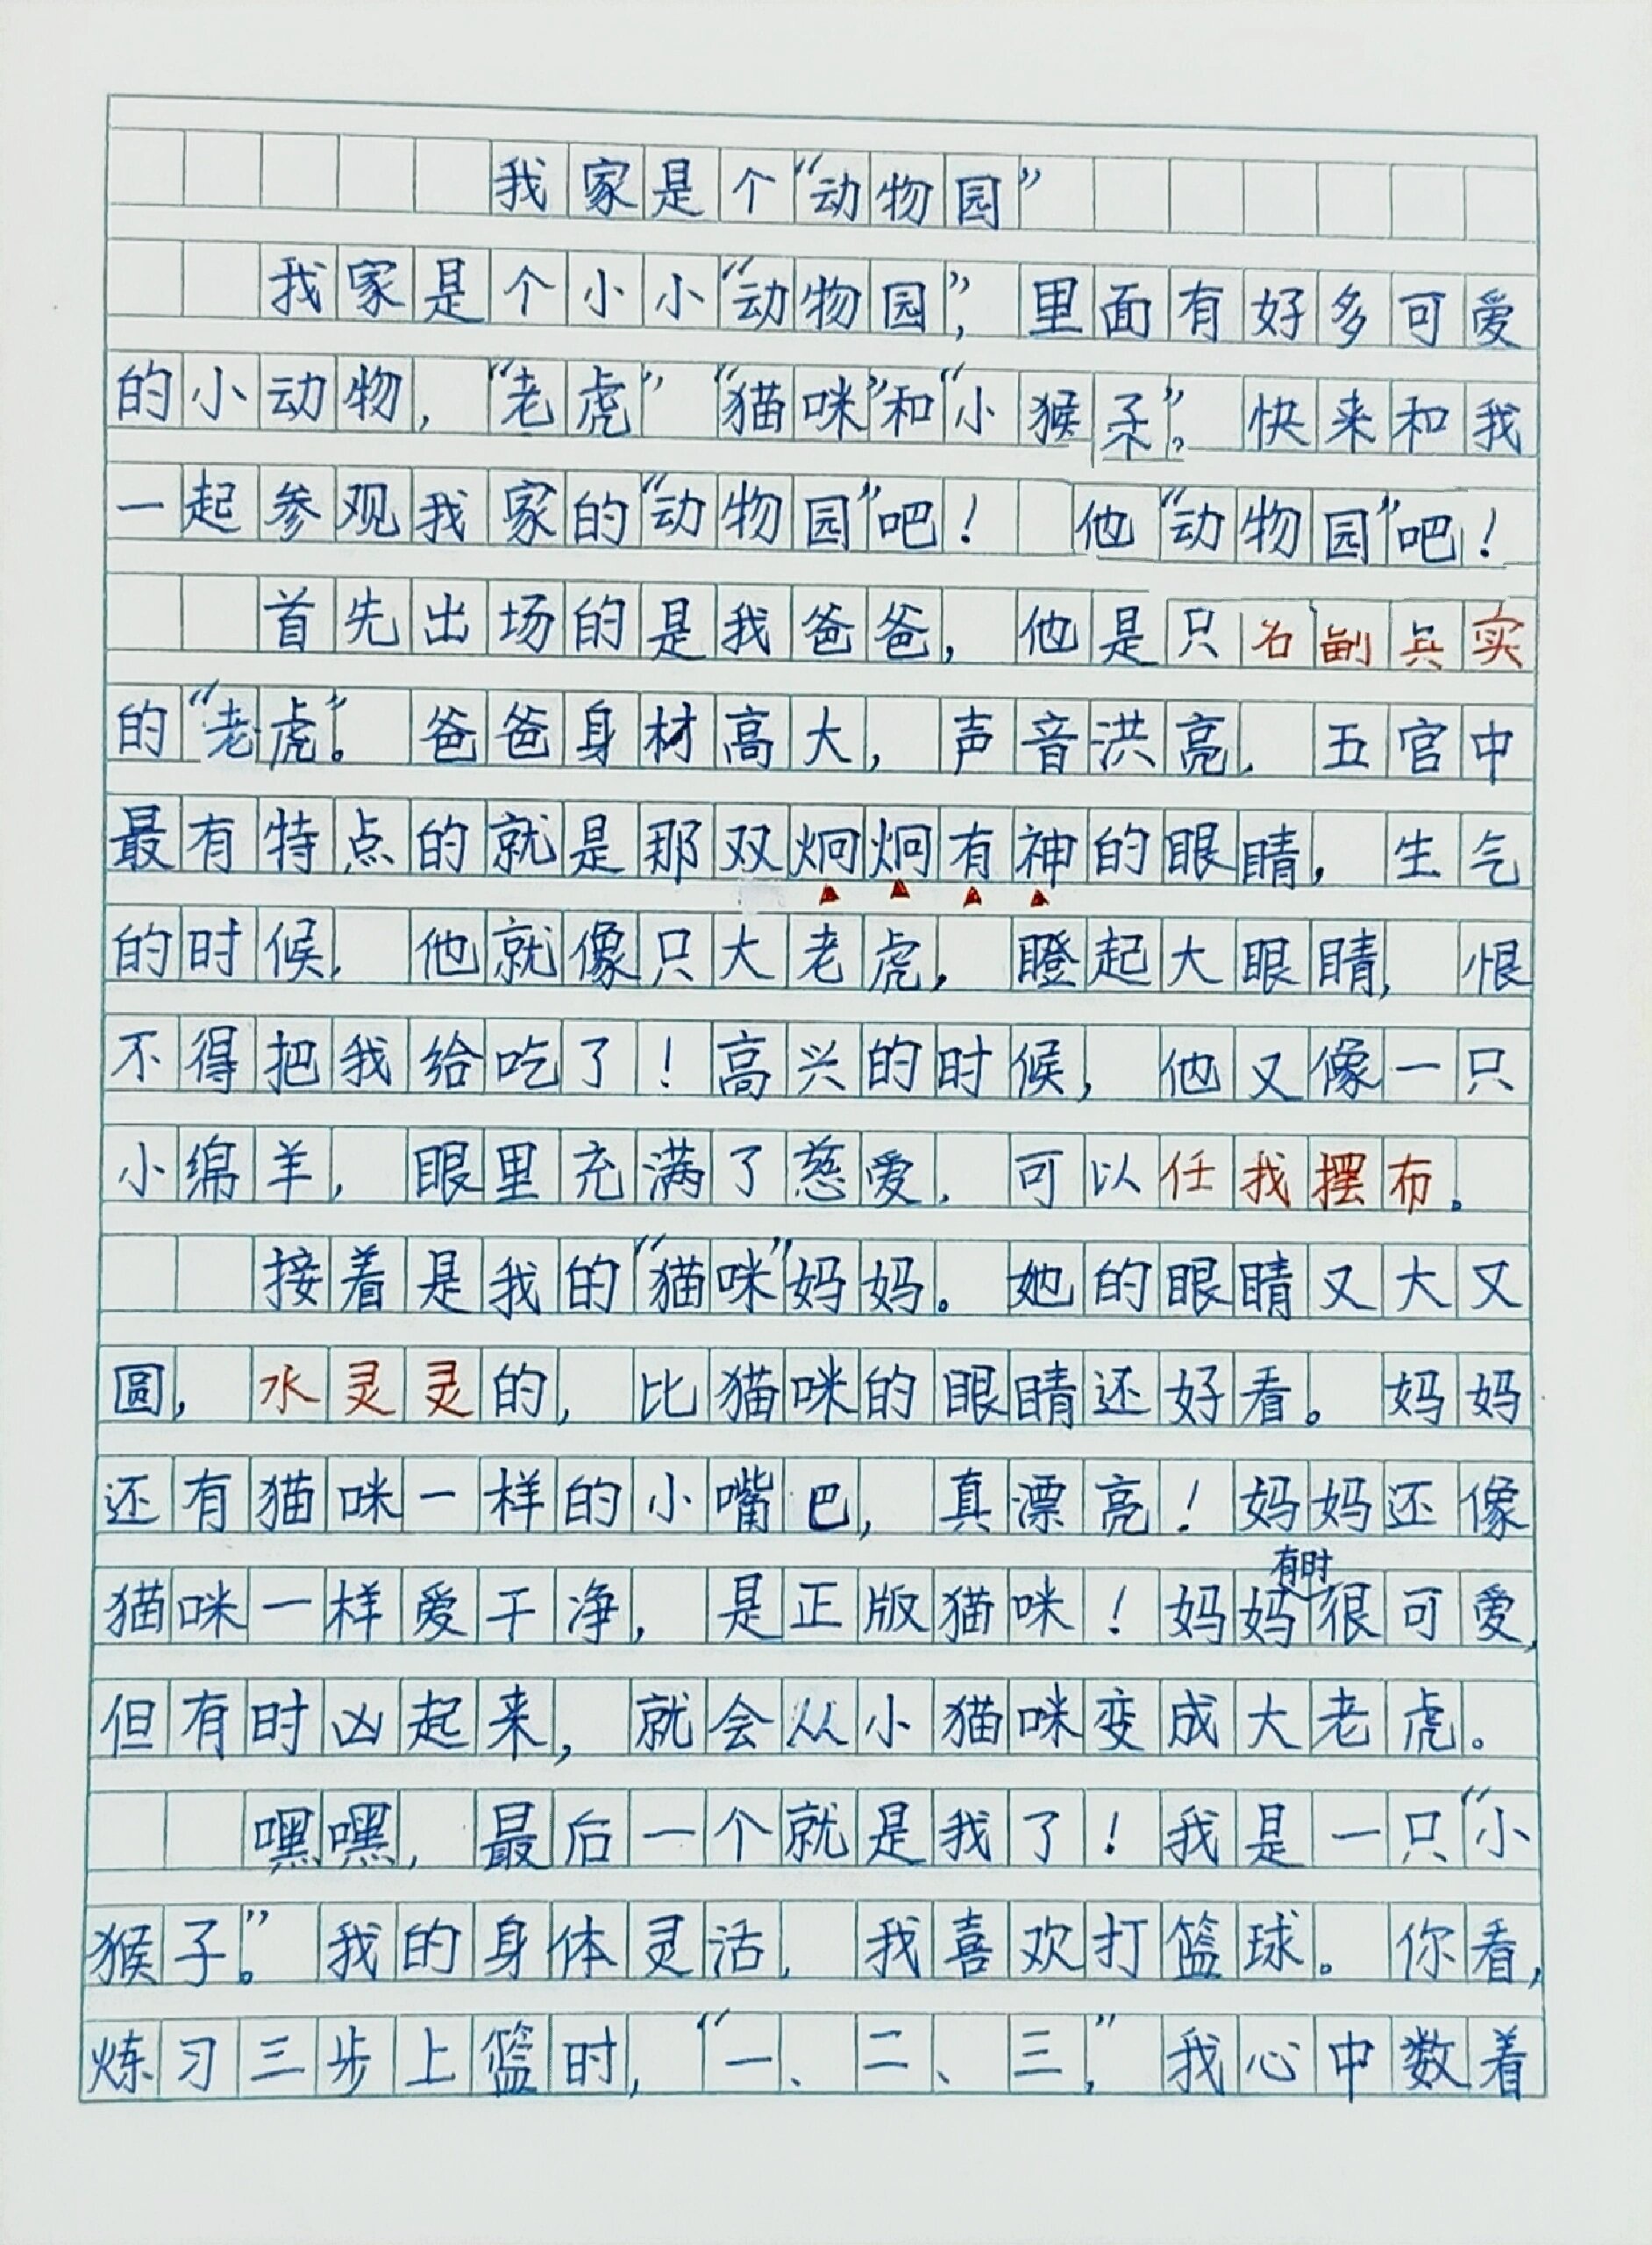 我家是个“动物园”
我家是个小小“动物园”，里面有好多可爱
的小动物，“老虎”“猫咪”和“小猴子”。快来和我
一起参观我家的“动物园”吧！他“动物园”吧！
首先出场的是我爸爸，他是只名副其实
的“老虎”。爸爸身材高大，声音洪亮，五官中
最有特点的就是那双炯炯有神的眼睛，生气
的时候，他就像只大老虎，瞪起大眼睛，恨
不得把我给吃了！高兴的时候，他又像一只
小绵羊，眼里充满了慈爱，可以任我摆布。
接着是我的“猫咪”妈妈。她的眼睛又大又
圆，水灵灵的，比猫咪的眼睛还好看。妈妈
还有猫咪一样的小嘴巴，真漂亮！妈妈还像
猫咪一样爱干净，是正版猫咪！妈妈有时很可爱，
但有时凶起来，就会从小猫咪变成大老虎。
嘿嘿，最后一个就是我了！我是一只“小
猴子。”我的身体灵活，我喜欢打篮球。你看，
炼习三步上篮时，“一、二、三，”我心中数着